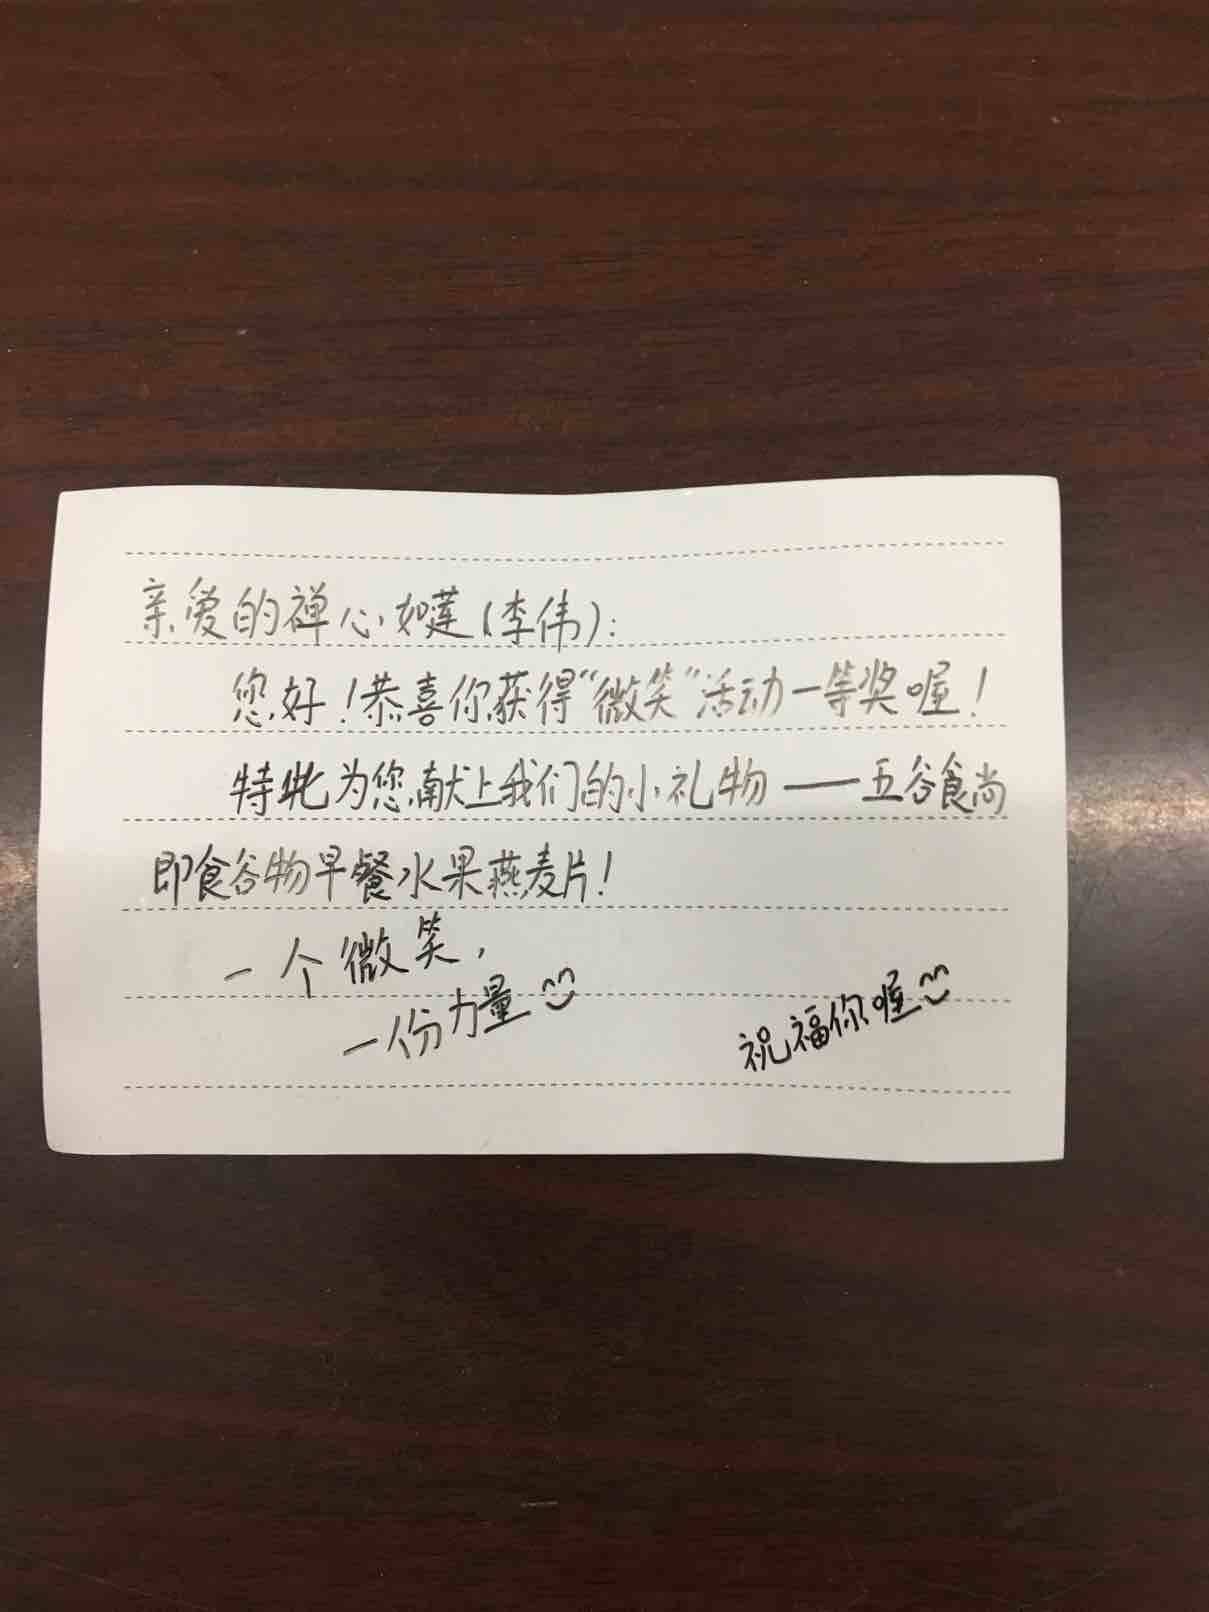 亲爱的禅心如莲(李伟):
您好!恭喜你获得“微笑”活动一等奖喔!
特此为您献上我们的小礼物——五谷食尚
即食谷物早餐水果燕麦片!
一个微笑,
一份力量
祝福你喔